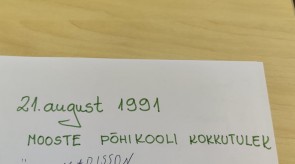 21. august 1991
MOOSTE PÕHIKOOLI KOKKUTULEK